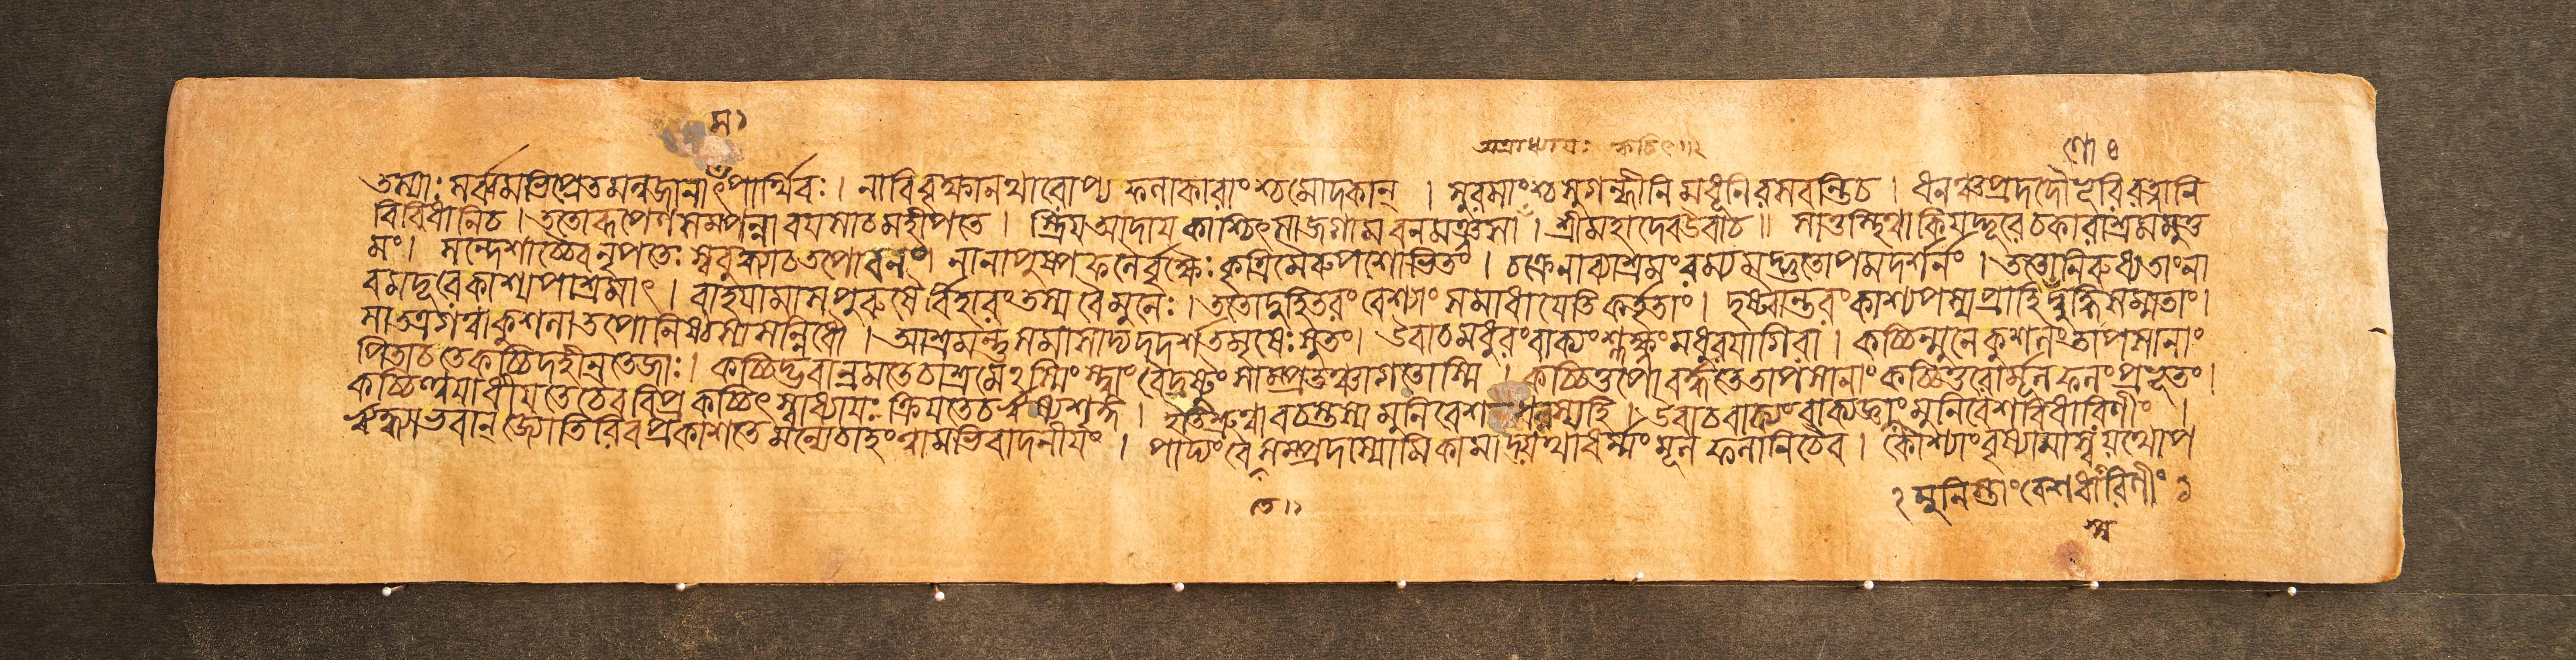 স১
অত্রাধ্যায়ঃ ক্বচিৎ॥২
শো ৪
তস্যাঃ সর্ব্বমভিপ্রেতমন্বজানাৎপার্থিবঃ। নাবিবৃক্ষানথারোপ্য ফলাকারাংশ্চমোদকান্ । সুরসাংশ্চসুগন্ধীনি মধূনিরসবন্তিচ। ধনঞ্চপ্রদদৌভূরিরত্নানি
বিবিধানিচ। ততোরূপেণসম্পন্নাবয়সাচমহীপতে। স্ত্রিয়আদায়কাশ্চিৎসাজগামবনমঞ্জসা। শ্রীমহাদেবউবাচ॥ সাতু কিয়দ্দূরেচকারাশ্রমমুত্ত
মং। সন্দেশাচ্চৈবনৃপতেঃ স্ববুদ্ধ্যাচতপোবনং। নানাপুষ্পফলৈর্বৃক্ষৈঃকৃত্রিমৈরুপশোভিতং। চক্রেনাব্যাশ্রমংরম্যমদ্ভুতোপমদর্শনং। ততোনিবধ্যতাংনা
বমদূরেকাশ্যপাশ্রমাৎ। বাহয়ামাসপুরুষৈর্বিহারংতস্যবৈমুনেঃ। ততোদুহিতরংবেশ্যাংসমাধায়েতিকর্তৃতাং। দৃষ্ট্বান্তরংকাশ্যপস্যপ্রাহিদ্বুদ্ধিসম্মতাং।
সাতত্রগত্বাকুশলাতপোনিষ্ঠস্যসন্নিধৌ। আশ্রমন্তুসমাসাদ্যদদর্শতমৃষেঃসুতং। উবাচমধুরংবাক্যংশ্লক্ষ্ণংমধুরয়াগিরা। কচ্চিন্মুনেকুশলংতাপসানাং
পিতাচতেকচ্চিদহীনতেজাঃ। কচ্চিদ্ভবান্রমতেচাশ্রমেঽস্মিংস্ত্বাংবৈদ্রষ্টুংসাম্প্রতঞ্চাগতোস্মি। কচ্চিত্তপোবর্দ্ধতেতাপসানাংকচ্চিত্তরোর্মূলফলংপ্রভূতং।
কচ্চিত্ত্বয়াধীয়তেচৈববিপ্রকচ্চিৎস্বাধ্যায়ঃক্রিয়তেচর্ষ্যশৃঙ্গ। ইতিশ্রুত্বাবচস্তস্যমুনিবেশধরস্যহি। উবাচবাক্যংবাক্যজ্ঞাংমুনিবেশবিধারিণীং।
ঋদ্ধ্যাভবান্জ্যোতিরিবপ্রকাশতেমন্যেচাহংত্বামভিবাদনীয়ং। পাদ্যংবৈসম্প্রদাস্যামিকামাদ্যথাধর্ম্মংমূলফলানিচৈব। কৌশ্যাংবৃষ্যামাস্বযথোপ
মুনিস্তাংবেশধারিণীং ১
তে॥